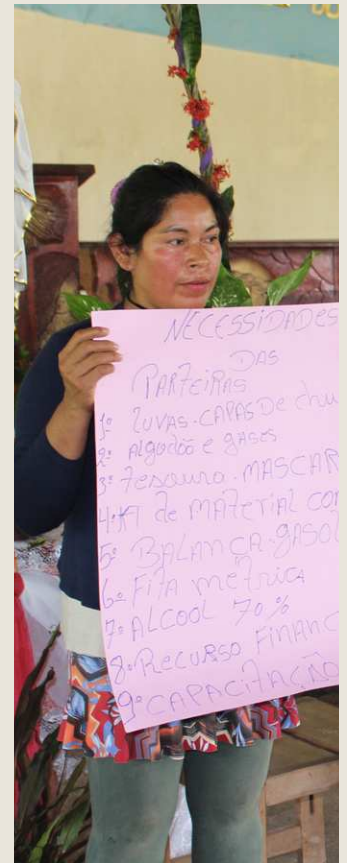 NECESSIDADES
DAS
PARTEIRAS
1º LUVAS-CAPAS De chu
2º Algodão e gases
3º Tesoura-MASCAR
4º KT de MATERIAL CO
5º BALANÇA-gASOL
6º FITA métrica
7º ALCOOL 70%
8º RECURSO FINANC
9º CAPACITAÇÃO